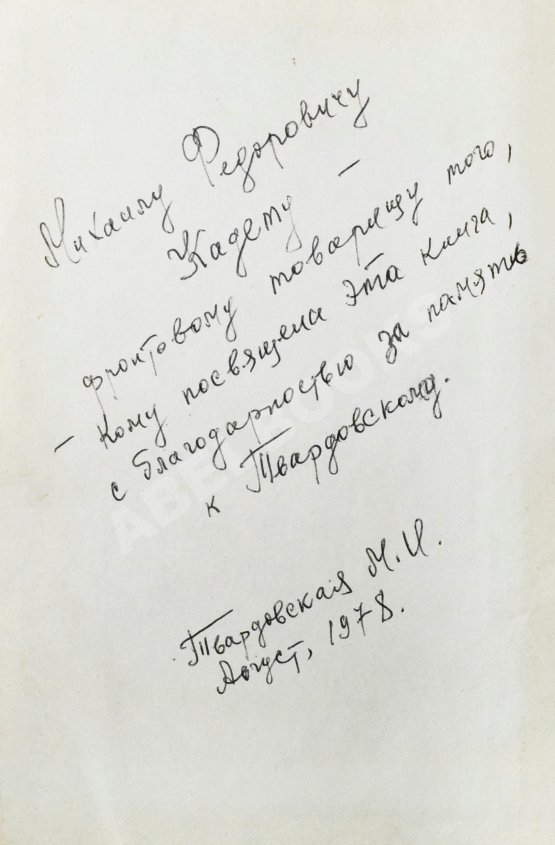 Михаилу Федоровичу
Кадету —
фронтовому товарищу того,
— кому посвящена эта книга,
с благодарностью за память
к Твардовскому.
Твардовская М.И.
Август, 1978.